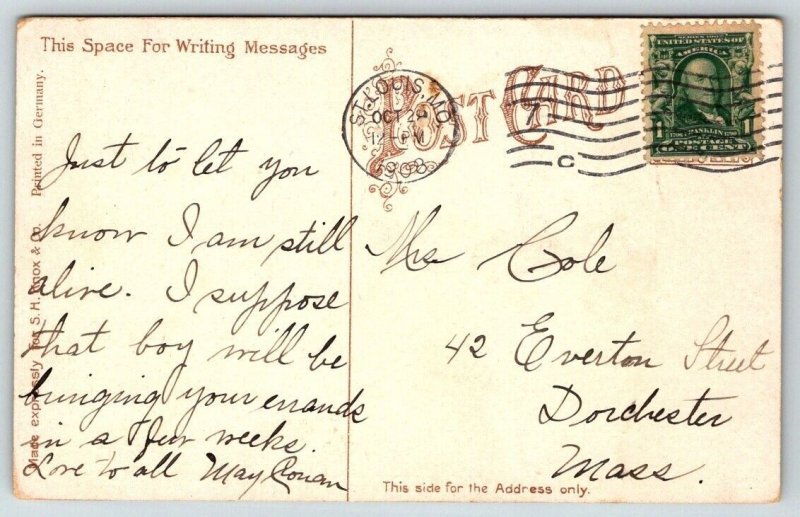 This Space For Writing Messages
Printed in Germany.
Made expressly for S.H. Knox & Co.
POST CARD
ST. LOUIS, MO
OCT 2
12 PM
1908
7
C
SERIES 1902
UNITED STATES OF
AMERICA
1 FRANKLIN 1
POSTAGE
ONE CENT
Just to let you
know I am still
alive. I suppose
that boy will be
bringing your errands
in a few weeks.
Love to all May
Mrs Cole
42 Everton Street
Dorchester
Mass.
This side for the Address only.